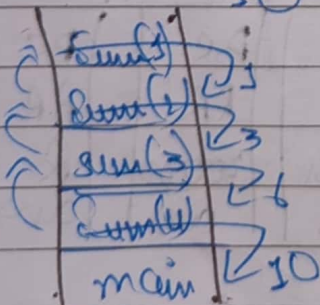 Sum(1)
1
Sum(2)
3
sum(3)
6
Sum(4)
10
main